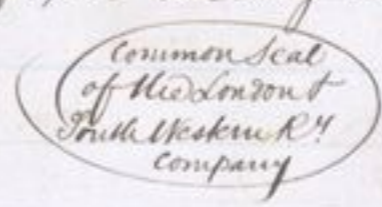 Common Seal
of the London &
South Western Ry
Company